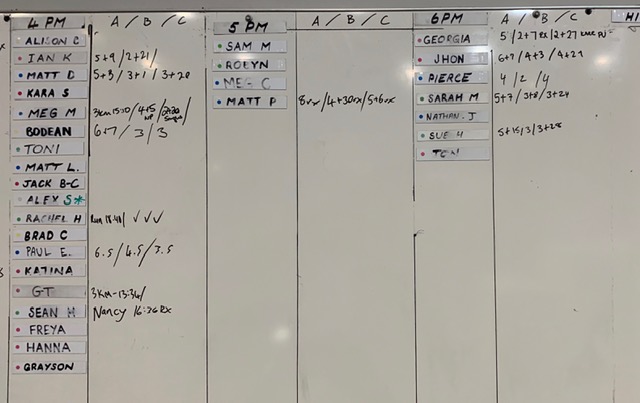 4 PM A / B / C
ALISON C
IAN K 5+9 / 2+21 /
MATT D 5+3 / 3+1 / 3+20
KARA S
MEG M 3km 15:10 / 4+5
BODEAN 6+7 / 3 / 3
TONI
MATT L.
JACK B-C
ALEX S*
RACHEL H ✓ ✓ ✓
BRAD C
PAUL E. 6.5 / 4.5 / 3.5
KATINA
GT 3KM-13:36/
SEAN H Nancy 16:26 Rx
FREYA
HANNA
GRAYSON
5 PM A / B / C
SAM M
ROBYN
MEG C
MATT P 8rx / 4+30rx / 5+6rx
6PM A / B / C
GEORGIA 5 / 2+7 Rx / 2+27
JHON 6+7 / 4+3 / 4+21
PIERCE 4 / 2 / 4
SARAH M 5+7 / 3+8 / 3+24
NATHAN. J
SUE H 5+15 / 3 / 3+28
HI